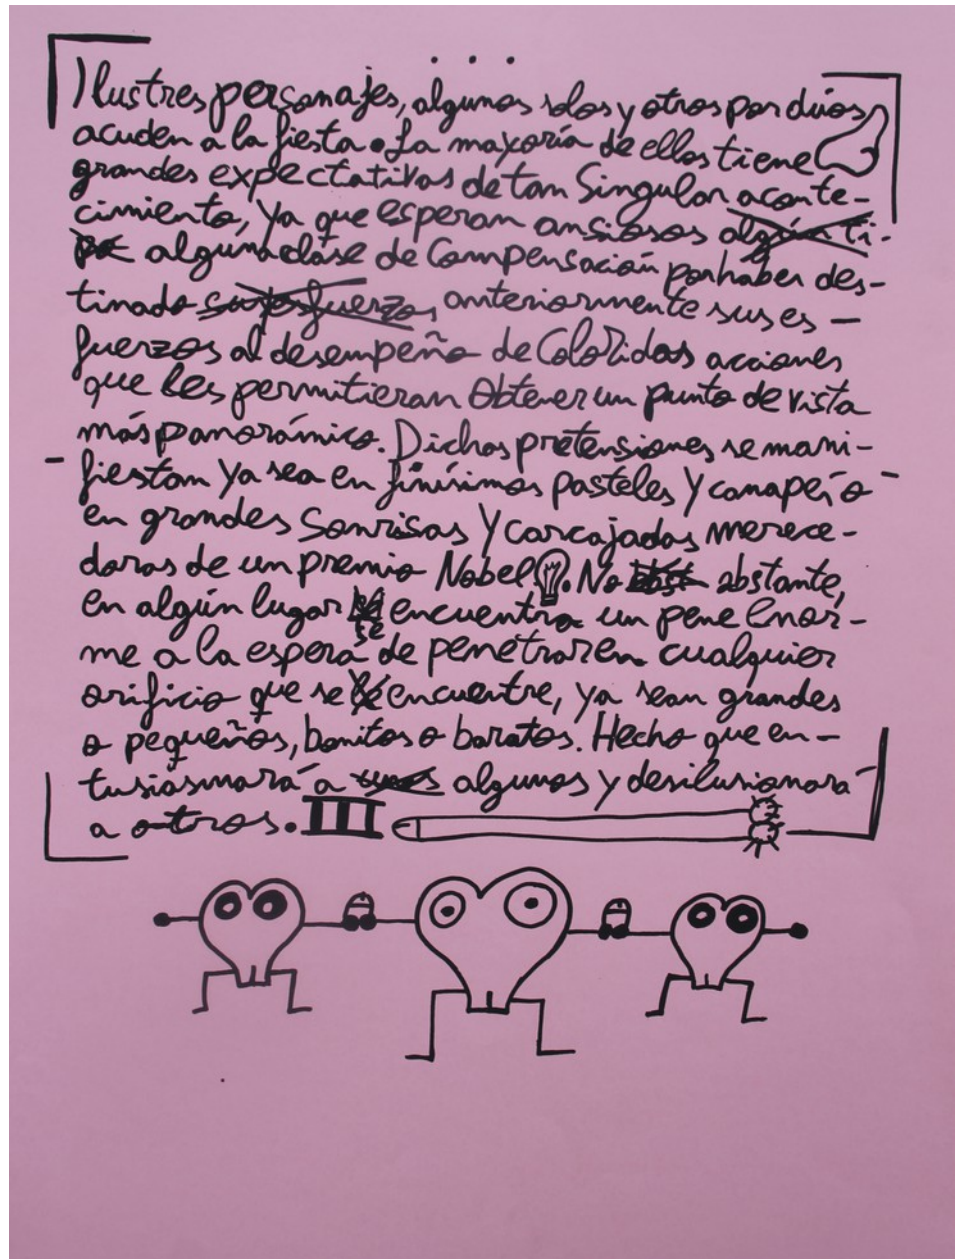 ...
Ilustres personajes, algunos solos y otros por duos,
acuden a la fiesta. La mayoría de ellos tiene
grandes expectativas de tan Singular aconte-
cimiento, ya que esperan ansiosos algún ti-
po alguna clase de Compensación por haber des-
tinado sus esfuerzos anteriormente sus es-
fuerzos al desempeño de Coloridas acciones
que les permitieran Obtener un punto de vista
más panorámico. Dichas pretensiones se mani-
fiestan ya sea en finísimos pasteles y canapés o
en grandes Sonrisas y carcajadas merece-
doras de un premio Nobel. No obst obstante,
en algún lugar se encuentra un pene Enor-
me a la espera de penetrar en cualquier
orificio que se encuentre, ya sean grandes
o pequeños, bonitos o baratos. Hecho que en-
tusiasmará a unos algunos y desilusionará
a otros.